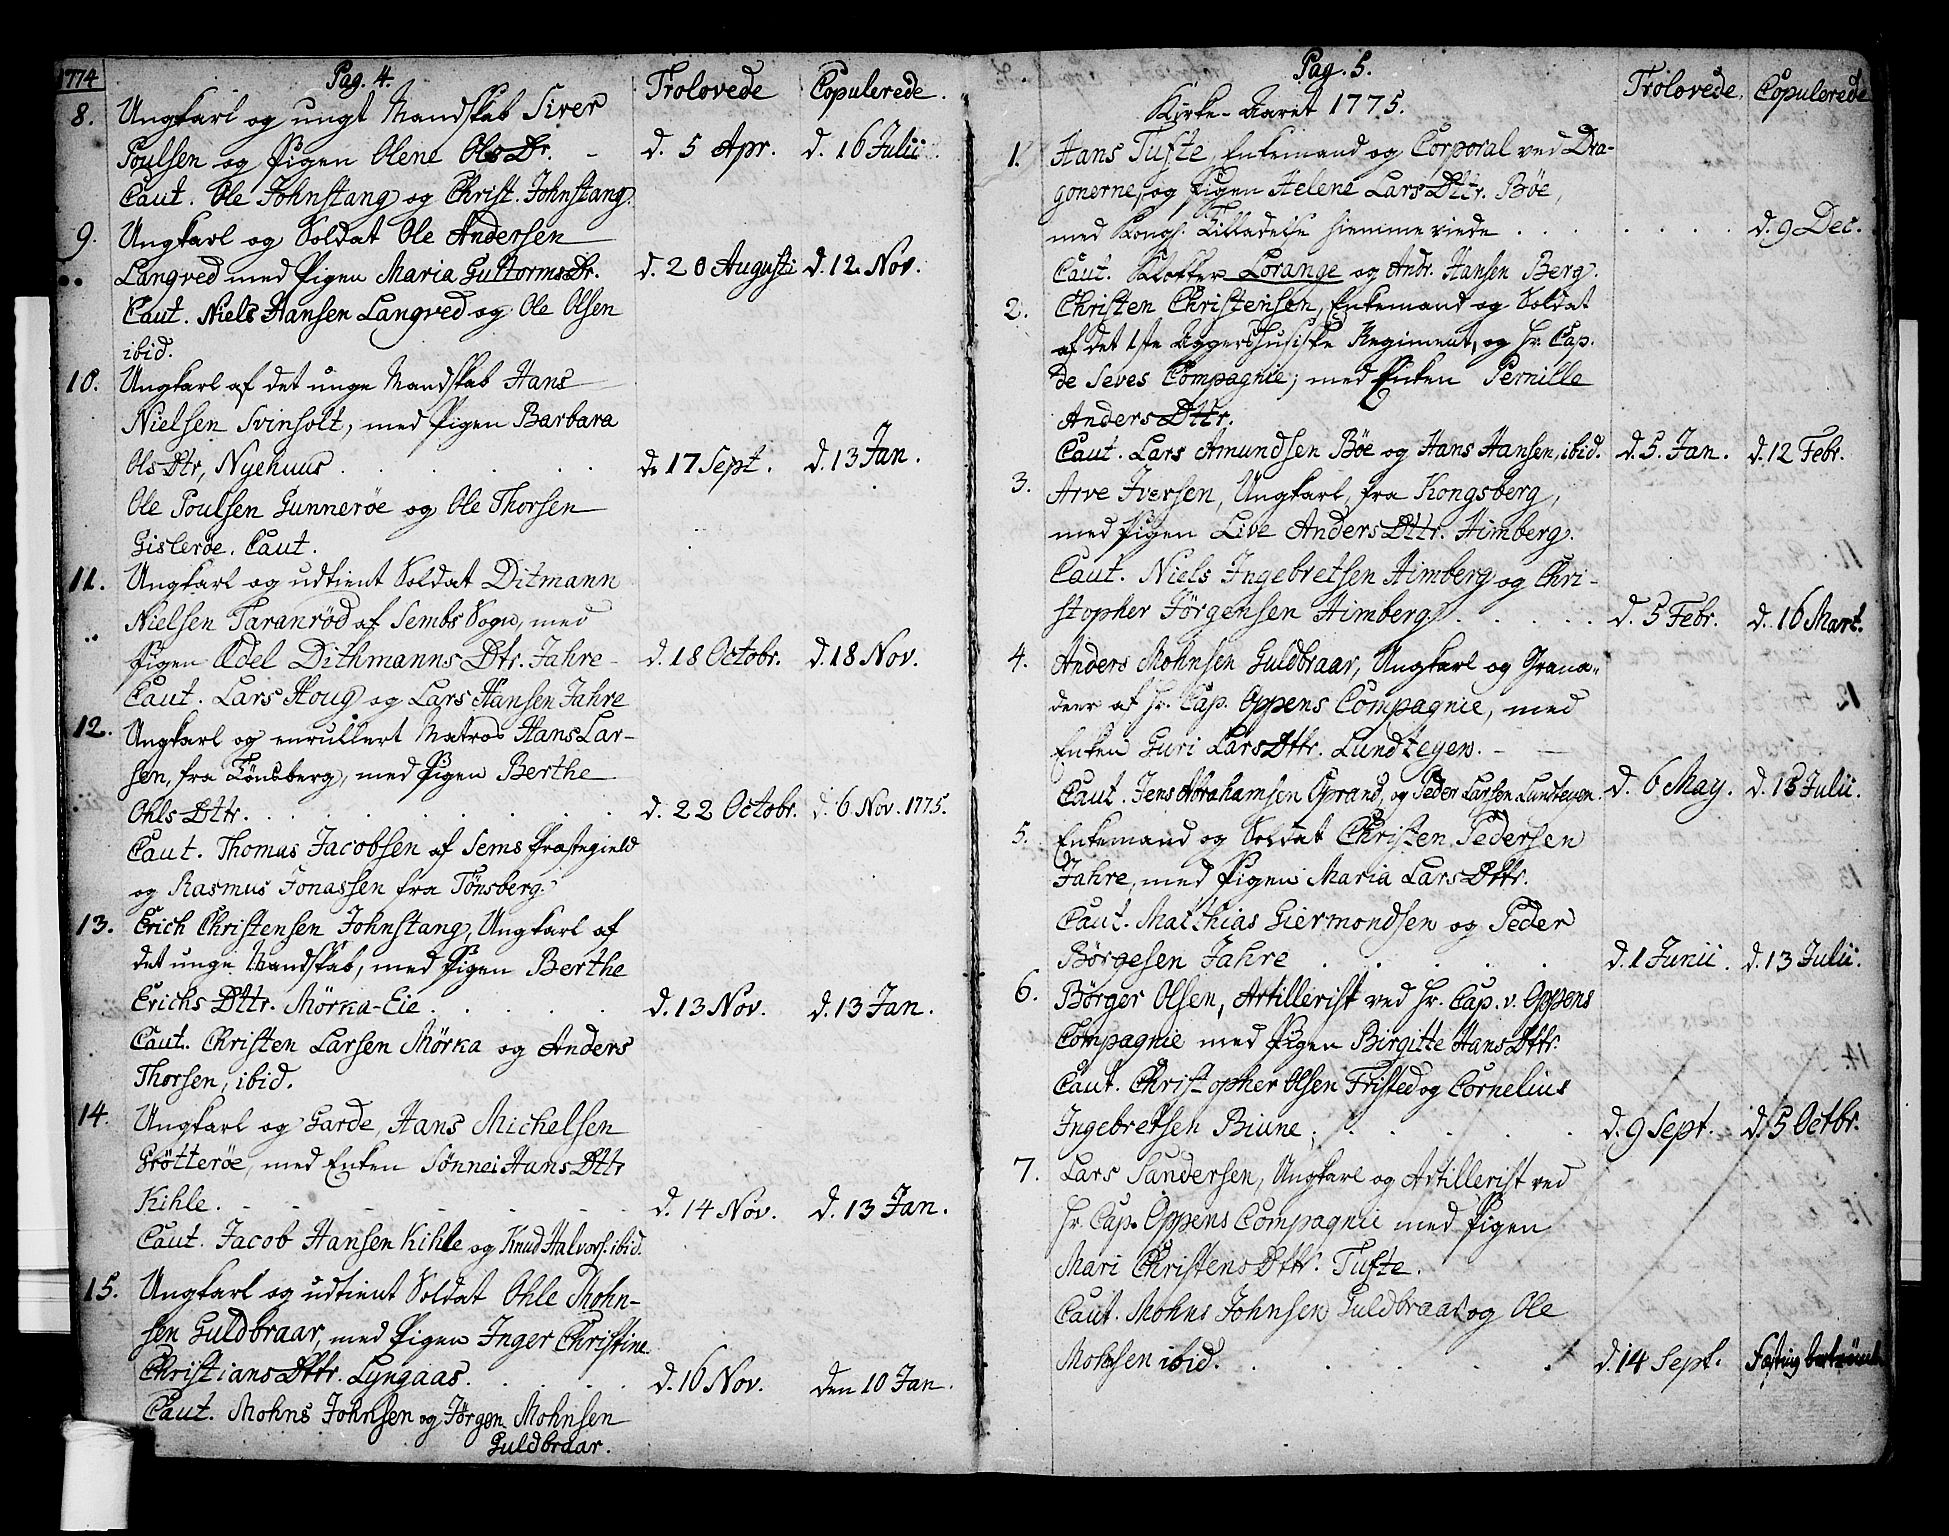 1774
Pag. 4.
Trolovede
Copulerede.
8. Ungkarl og ungt Mandskab Siver
Poulsen og Pigen Olene Ols Dr. -
d. 5 Apr. d. 16 Julii
Caut. Ole Johnstang og Christ. Johnstang.
9. Ungkarl og Soldat Ole Andersen
Langved med Pigen Maria GuttormsDr.
d. 20 Augusti d. 12. Nov.
Caut. Niels Hansen Langved og Ole Olsen
ibid.
10. Ungkarl af det unge Mandskab Hans
Nielsen Svinholt, med Pigen Barbara
Ols Dtr, Nyehuus . . . .
d. 17 Sept. d. 13 Jan.
Ole Poulsen Gunnerøe og Ole Thorsen
Gislerøe. Caut.
11. Ungkarl og udtient Soldat Ditmann
Nielsen Taranrød af Sembs Sogn, med
Pigen Ædel Dithmanns Dtr. Jahre -
d. 18 Octobr. d. 18 Nov.
Caut. Lars Houg og Lars Hansen Jahre
12. Ungkarl og enrullert Matros Hans Lar-
sen, fra Tønsberg, med Pigen Berthe
Ohls Dttr. . . . . . . .
d. 22 Octobr. d. 6 Nov. 1775.
Caut. Thomas Jacobsen af Sems Præstegield
og Rasmus Jonassen fra Tønsberg.
13. Erich Christensen Johnstang, Ungkarl af
det unge Mandskab, med Pigen Berthe
Erichs Dttr. Mørka-Eie . . . . .
d. 13 Nov. d. 13 Jan.
Caut. Christen Larsen Mørka og Anders
Thorsen, ibid.
14. Ungkarl og Garde, Hans Michelsen
Grøtterøe, med Enken Sønnei Hans Dttr
Kihle. - - - - - -
d. 14 Nov. d. 13 Jan.
Caut. Jacob Hansen Kihle og Knud Halvors. ibid.
15. Ungkarl og udtient Soldat Ohle Mohn-
sen Guldbraar, med Pigen Inger Christine
Christians Dttr. Lyngaas. . . . .
d. 16 Nov. den 10 Jan.
Caut. Mohns Johnsen og Jørgen Mohnsen
Guldbraar.
Pag. 5.
Kirke-Aaret 1775.
Trolovede. Copulerede
1. Hans Tufte, Enkemand og Corporal ved Dra-
gonerne, og Pigen Helene Lars Dttr. Bøe,
med Kongl. Tilladelse hiemmeviede . . . . . . .
d. 9 Dec.
Caut. Klokker Lorange og Andr. Hansen Berg.
2. Christen Christensen, Enkemand og Soldat
af det 1ste Aggershusiske Regiment, og Hr. Cap.
De Seves Compagnie; med Enken Pernille
Anders Dttr.
Caut. Lars Amundsen Bøe og Hans Hansen, ibid.
d. 5. Jan. d. 12 Febr.
3. Arve Iversen, Ungkarl, fra Kongsberg,
med Pigen Live Anders Dttr. Himberg.
Caut. Niels Ingebretsen Himberg og Chri-
stopher Jørgensen Himberg. . . . . .
d. 5 Febr. d. 16 Mart.
4. Anders Mohnsen Guldbraar, Ungkarl og Grana-
deer af Hr. Cap. Oppens Compagnie, med
Enken Guri Lars Dttr. Lundtegen. - -
Caut. Jens Abrahamsen Oprand, og Peder Larsen Lundtegen.
d. 6 May. d. 13 Julii.
5. Enkemand og Soldat Christen Pedersen
Jahre, med Pigen Maria Lars Dttr.
Caut. Matthias Giermondsen og Peder
Børgesen Jahre . . . . .
d. 1 Junii. d. 13 Julii.
6. Børger Olsen, Artillerist ved Hr. Cap. v. Oppens
Compagnie med Pigen Birgitte Hans Dttr.
Caut. Christopher Olsen Fristed og Cornelius
Ingebretsen Biune; . . . . .
d. 9 Sept. d. 5 Octbr.
7. Lars Sandersen, Ungkarl og Artillerist ved
Hr. Cap. Oppens Compagnie med Pigen
Mari Christens Dttr. Tufte.
Caut. Mohns Johnsen Guldbraar og Ole
Mohnsen ibid. . . . . . .
d. 14 Sept.